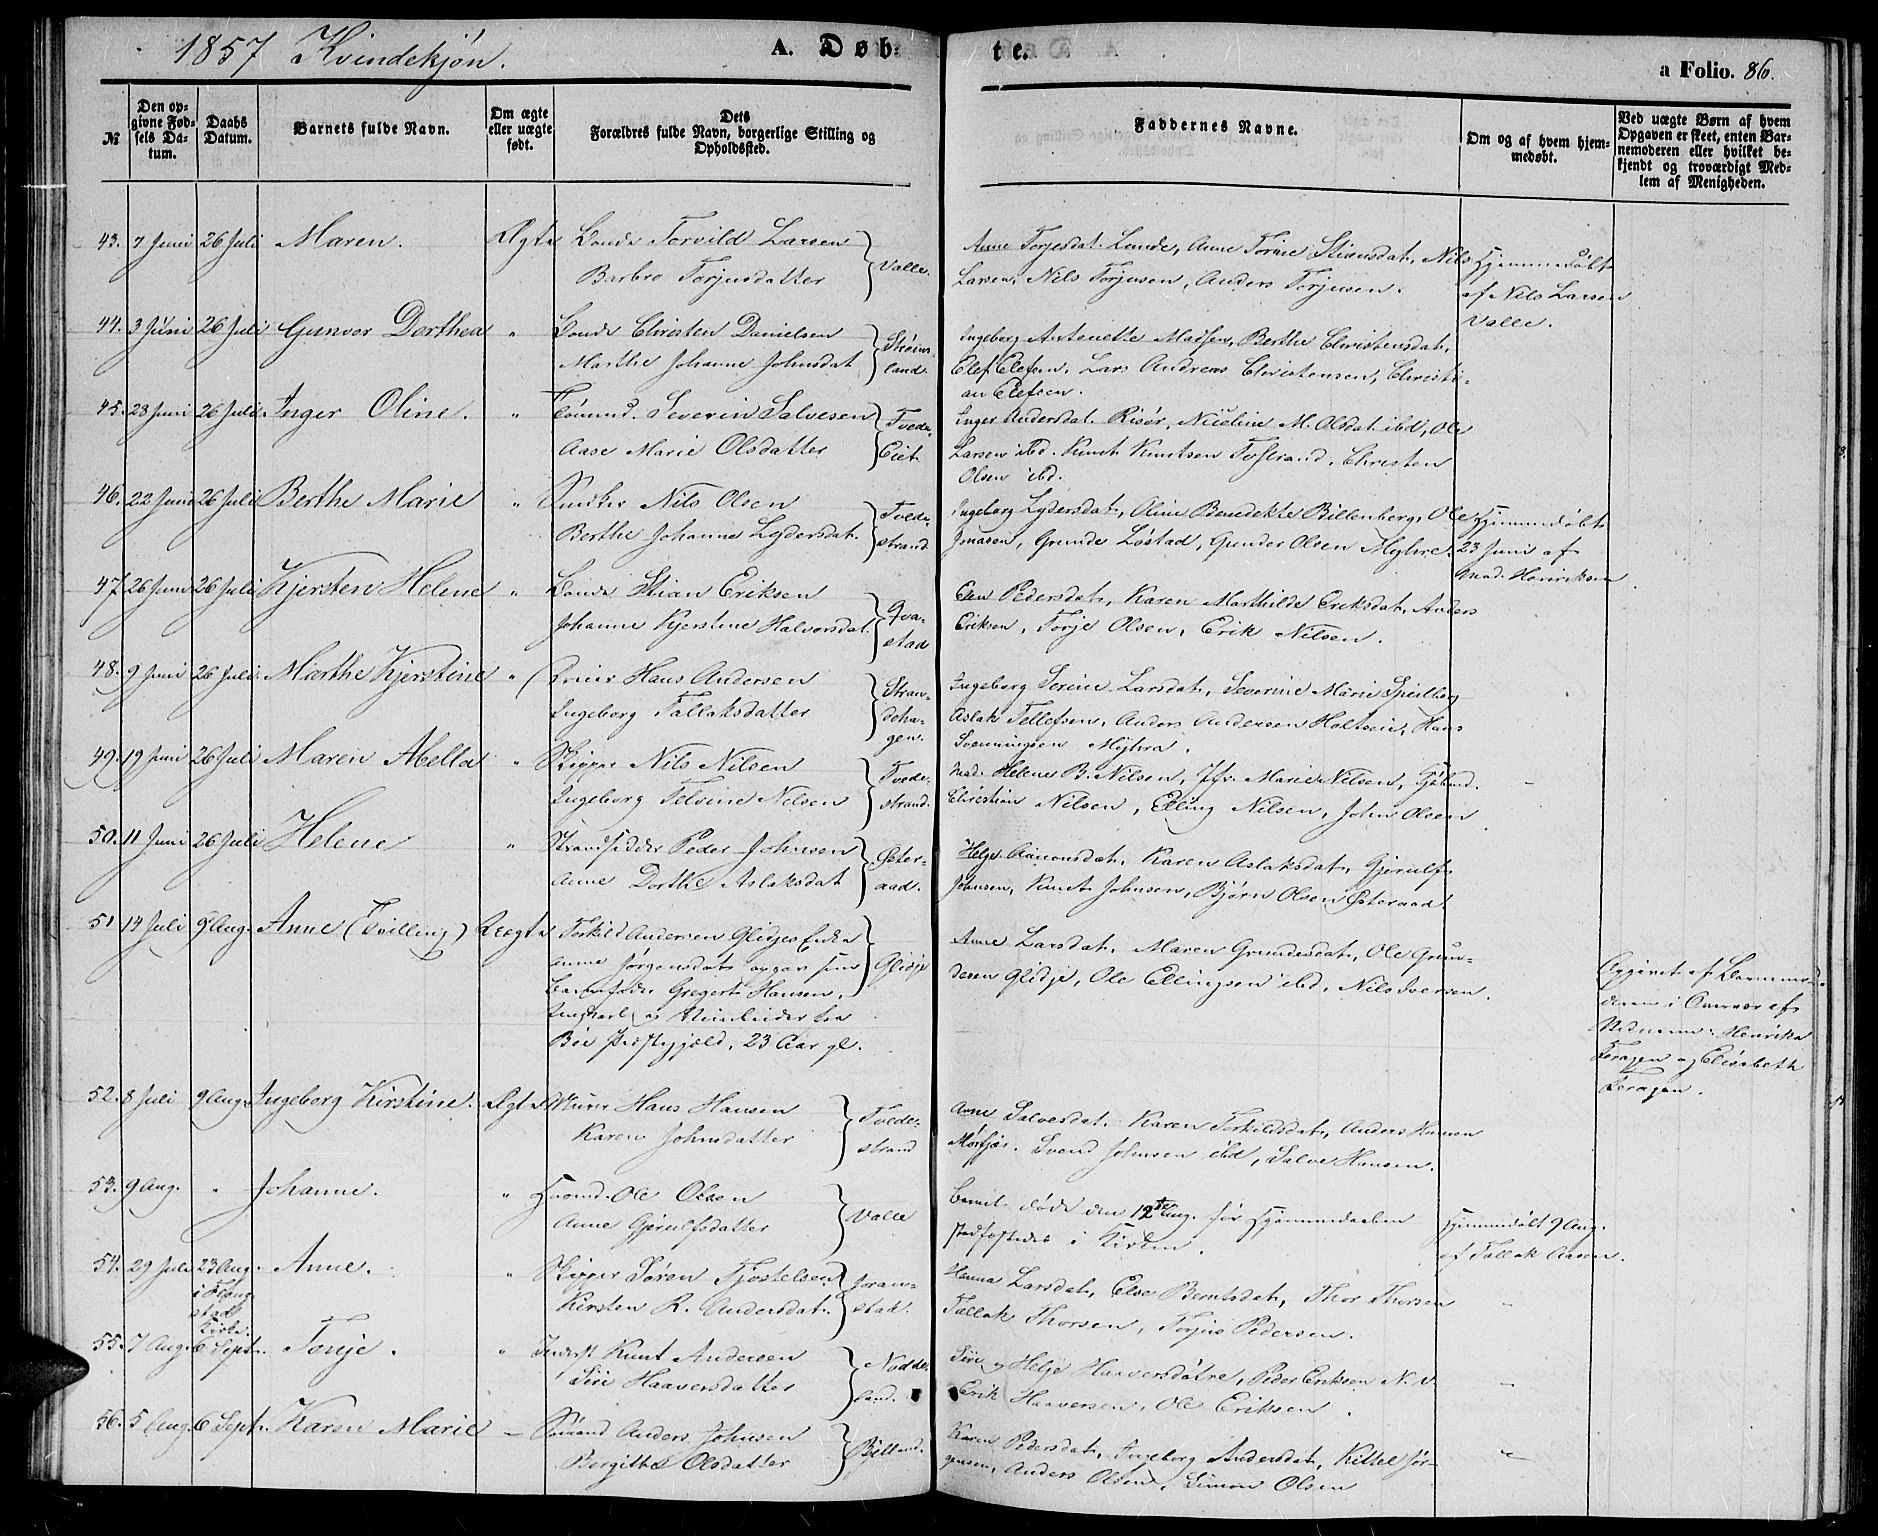 1857 Kvindekjøn.
A. Døbte.
a Folio. 86.
№
Den opgivne Fødsels Datum.
Daabs Datum.
Barnets fulde Navn.
Om ægte eller uægte født.
Dets Forældres fulde Navn, borgerlige Stilling og Opholdssted.
Faddernes Navne.
Om og af hvem hjemmedøbt.
Ved uægte Børn af hvem Opgaven er skeet, enten Barnemoderen eller hvilket bekjendt og troværdigt Medlem af Menigheden.
43. 7 Juni 26 Juli Maren. Ægte Bonde Torvild Larsen
Barbro Torjusdatter Valle.
Anne Torjesdat. Lunde, Anne Torine Stiansdat, Nils
Larsen, Nils Torjusen, Anders Torjusen.
Hjemmedøbt
af Nils Larsen
Valle.
44. 3 Juni 26 Juli Gunvor Dorthea " Bonde Christen Danielsen
Marthe Johanne Johnsdat
Ingeborg Antonette Madsen, Berthe Christensdat,
Olef Olefsen, Lars Andreas Christensen, Christi-
an Olefsen.
45. 28 Juni 26 Juli. Inger Oline. " Tømmd. Severin Salvesen
Aase Marie Olsdatter Tvede- Eiet.
Inger Andersdat. Risør, Nicoline M. Olsdat. ibd, Ole
Larsen ibd. Knut Knutsen Tostrand, Christen
Olsen ibd.
46. 22 Juni 26 Juli Berthe Marie " Snedker Nils Olsen
Berthe Johanne Lydersdat. Tvede- strand.
Ingeborg Lydersdat, Oline Benedikte Billenberg, Ole
Jonasen, Grunde Løstad, Gunder Olsen Myhre.
Hjemmedøbt
23 Juni af
Mad. Henriksen
47. 26 Juni 26 Juli Kjersten Helene " Bonde Stian Eriksen
Johanne Kjerstine Halvorsdat. Qva- stad
Elen Pedersdat, Karen Marthilde Eriksdat, Anders
Eriksen, Torje Olsen, Erik Nilsen.
48. 9 Juni 26 Juli. Marthe Kjerstine " Hans Andersen
Ingeborg Tallaksdatter Stran- deha- gen.
Ingeborg Serine Larsdat, Severine Marie Spielberg
Aslak Tellefsen, Anders Andersen Holteie, Hans
Svenningsen Myhra.
49. 19 Juni 26 Juli Maren Abella " Skipper Nils Nilsen
Ingeborg Telvine Nilsen Tvede- strand.
Mad. Helene B. Nilsen, Jfr. Marie Nilsen,
Christian Nilsen, Elling Nilsen, John Olsen
50. 11 Juni 26 Juli Helene " Strandsidder Peder Johnsen
Anne Dorthe Aslaksdat Øster- aad.
Helje Aanonsdat, Karen Aslaksdat, Gjerulf
Johnsen, Knut Johnsen, Bjørn Olsen Østeraad
51 14 Juli 9 Aug. Anne (Tvilling) Uægte Torkild Andersen Glidjes Enke
Anne Jørgensdat opgav som
Barnefader Gregert Hansen,
Ungkarl og fra
Bøe Præstegjeld, 23 Aar gl. Glidje
Anne Larsdat, Maren Grundesdat, Ole Grun-
desen Glidje, Ole Ellingsen ibd, Nils Iversen.
Opgivet af Barnemo-
deren i Overvær af
Madame: Henrikke
Feragen og Elisabeth
Feragen.
52. 8 Juli 9 Aug. Ingeborg Kirstine. Ægte Murer Hans Hansen
Karen Johnsdatter Tvede- strand
Anne Salvesdat, Karen Torkildsdat, Anders Hansen
Mørfjær. Svend Johnsen ibd, Salve Hansen.
53. 9 Aug. " Johanne. " Huusmd. Ole Olsen
Anne Gjerulfsdatter Valle
døde den 12te Aug. før Hjemmedaaben
stadfæstedes i Kirken.
Hjemmedøbt 9 Aug.
af Tallak Aasen.
54. 29 Juli 23 Aug. Anne. " Skipper Søren Tjostelsen
i Flang-
stad
Kirke.
Kirsten R. Andersdat.
Hanna Larsdat, Else Berntsdat, Thor Thorsen
Tallak Thorsen, Torjus Pedersen.
"
55. 7 Aug. 6 Sept. Tonje. " Inderst Knut Andersen
Siri Haaversdatter Nødde- land.
Siri og Helje Haaversdøtre, Peder Eriksen N. V.
Erik Haaversen, Ole Eriksen.
56. 5 Aug. 6 Sept. Karen Marie – Sømand Anders Johnsen
Bergithe Olsdatter Bjelland.
Karen Pedersdat, Ingeborg Andersdat, Kittel Jør-
gensen, Anders Olsen, Simon Olsen